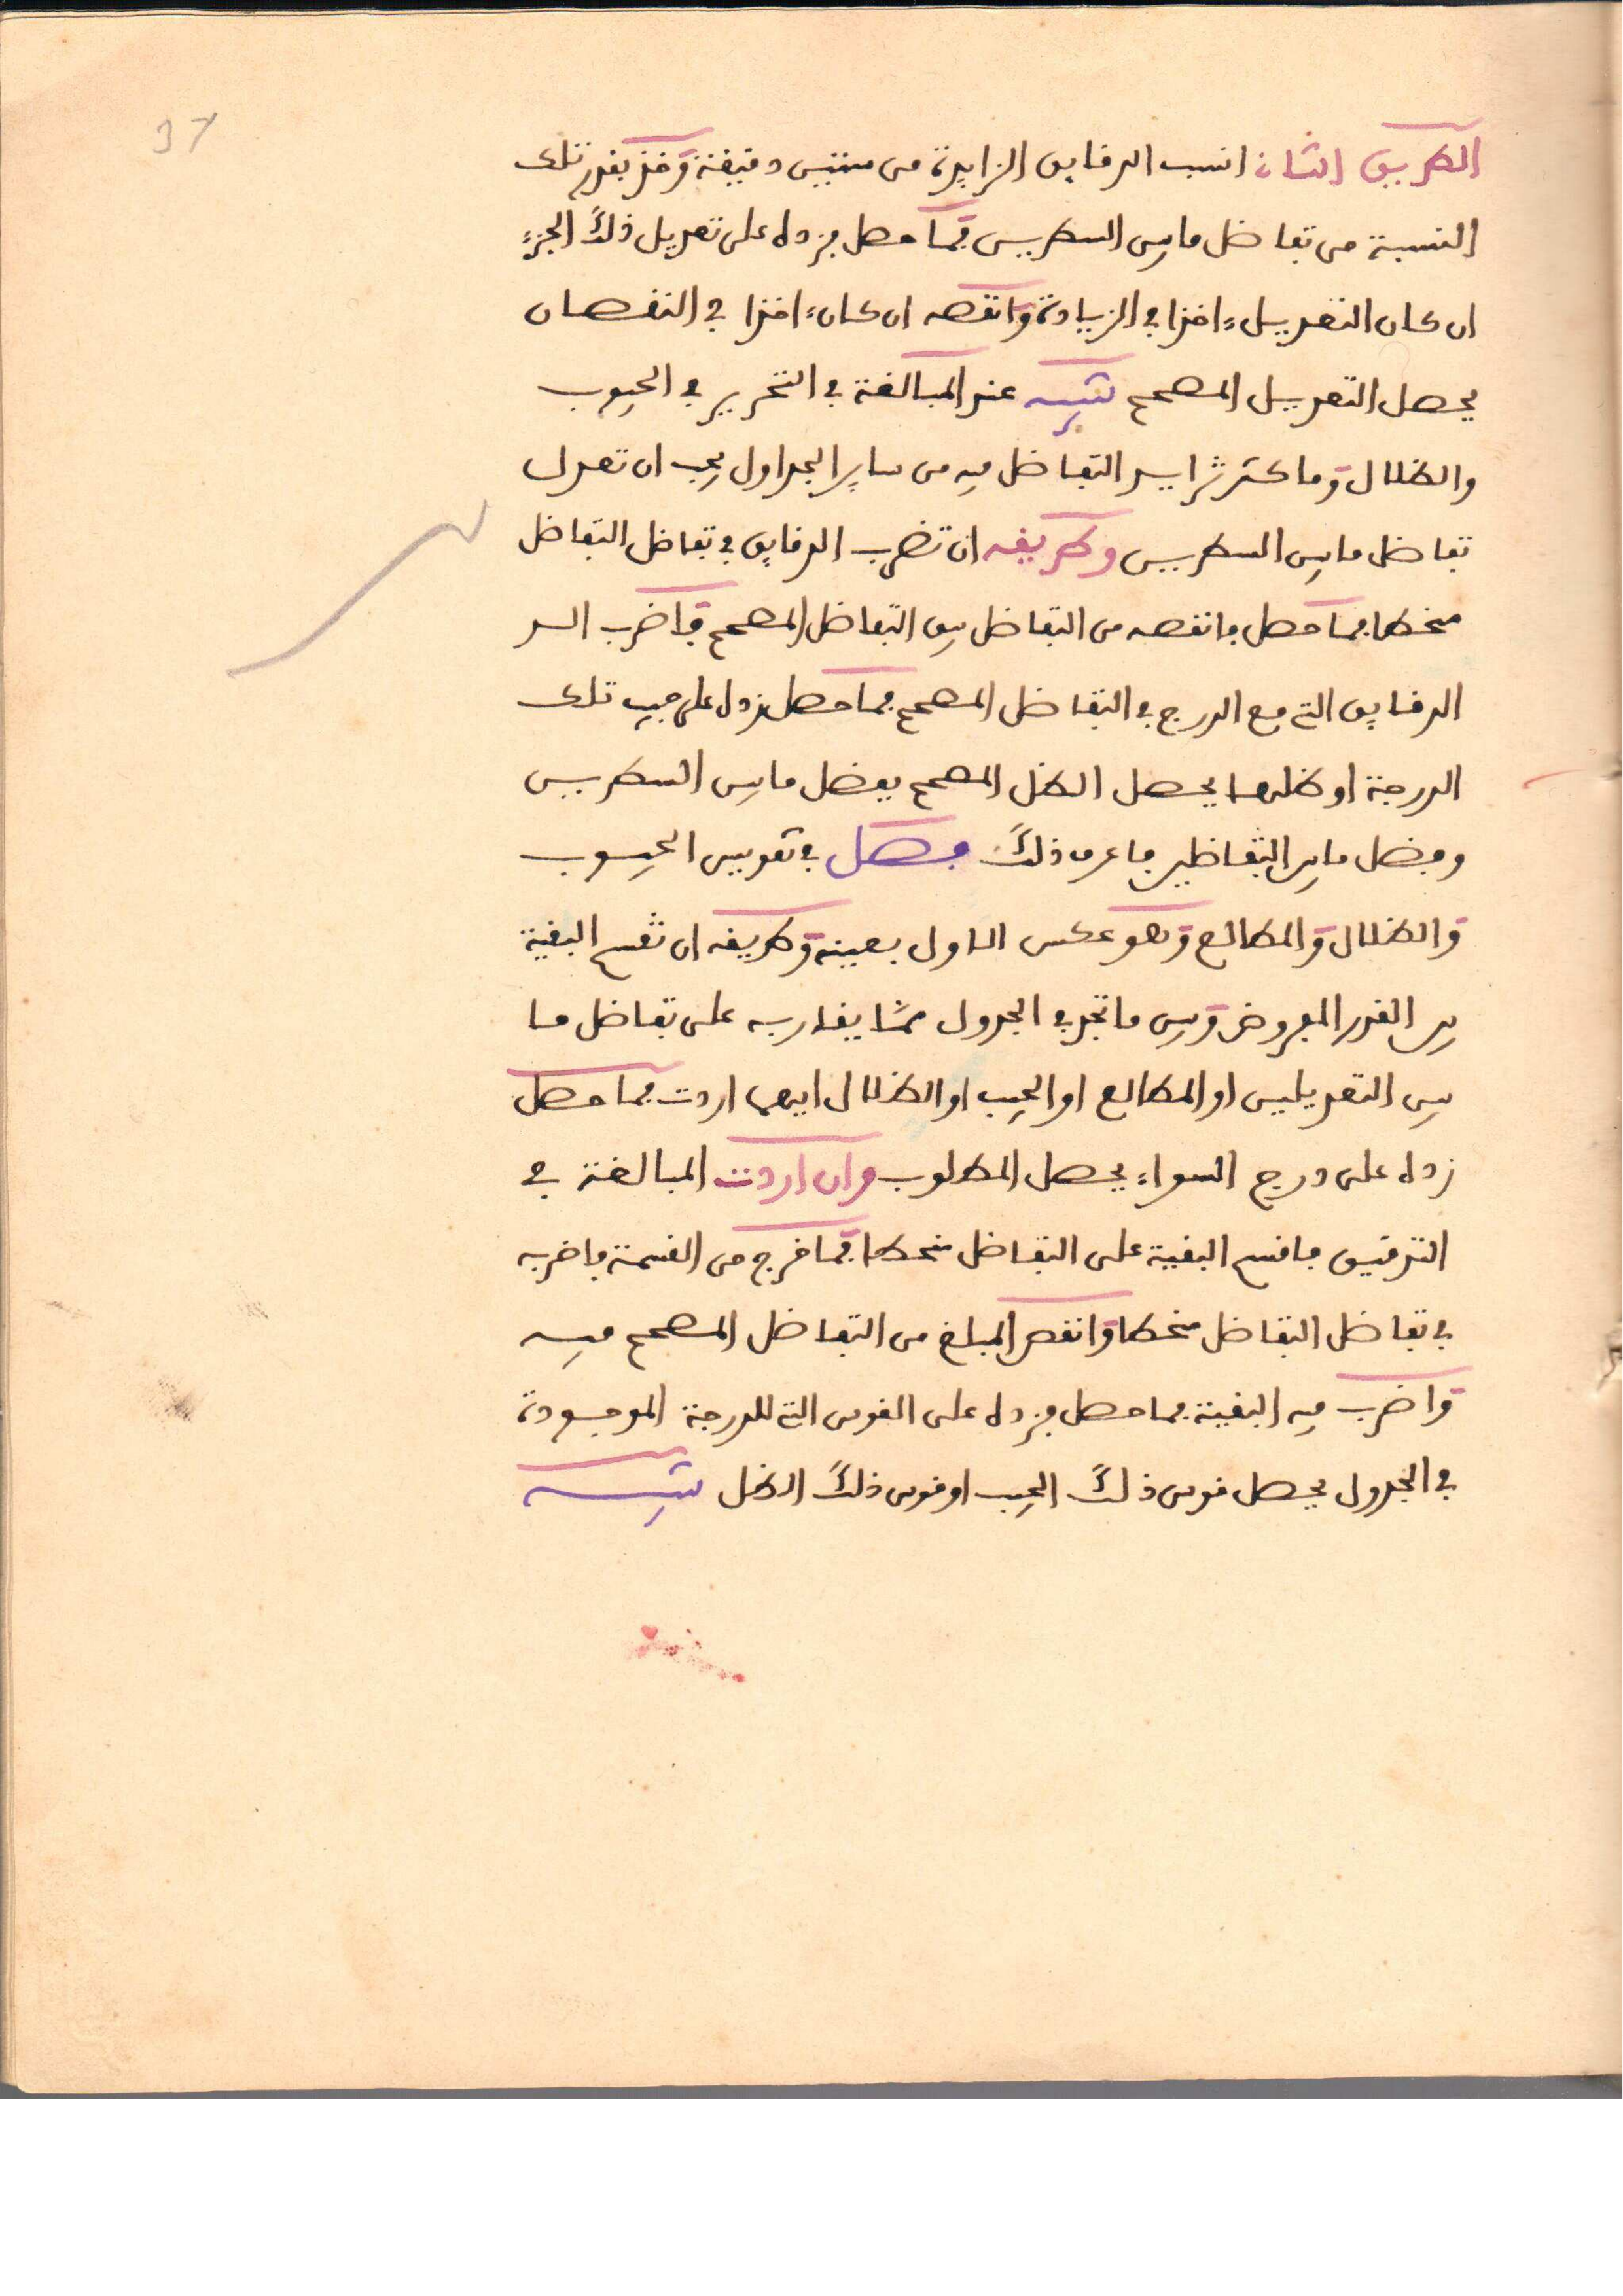 37
الطريق الثان انسب الدقايق الزايدة من ستين دقيقة وخذ بقدر تلك
النسبة من تفاضل مابين السطرين فما حصل فزده على تعديل ذلك الجزء
ان كان التعديل ءاخذا في الزيادة وانقصه ان كان ءاخذا في النقصان
يحصل التعديل المصحح تنبيه عند المبالغة في التحرير في الجيوب
والظلال وما كثر تزايد التفاضل فيه من ساير الجداول يجب ان تعدل
تفاضل مابين السطرين وطريقه ان تضرب الدقايق في تفاضل التفاضل
منحطا فما حصل فانقصه من التفاضل يبق التفاضل المصحح فاضرب الد
الدقايق التي مع الدرج في التفاضل المصحح فما حصل زده على جيب تلك
الدرجة او ظلها يحصل الظل المصحح بفضل مابين السطرين
وفضل مابين التفاظلين فاعرف ذلك فصل في تقويس الجيوب
والظلال والمطالع وهو عكس الاول بعينه وطريقه ان تقسم البقية
بين القدر المفروض وبين ما تجد في الجدول مما يقاربه على تفاضل ما
بين التعديلين او المطالع او الجيب او الظلال ايهما اردت فما حصل
زده على درج السواء يحصل المطلوب وان اردت المبالغة في
التدقيق فاقسم البقية على التفاضل منحطا فما خرج من القسمة فاضربه
في تفاضل التفاضل منحطا وانقص المبلغ من التفاضل المصحح فيه
واضرب فيه البقية فما حصل فزده على القوس التي للدرجة الموجودة
في الجدول يحصل قوس ذلك الجيب او قوس ذلك الظل تنبيه